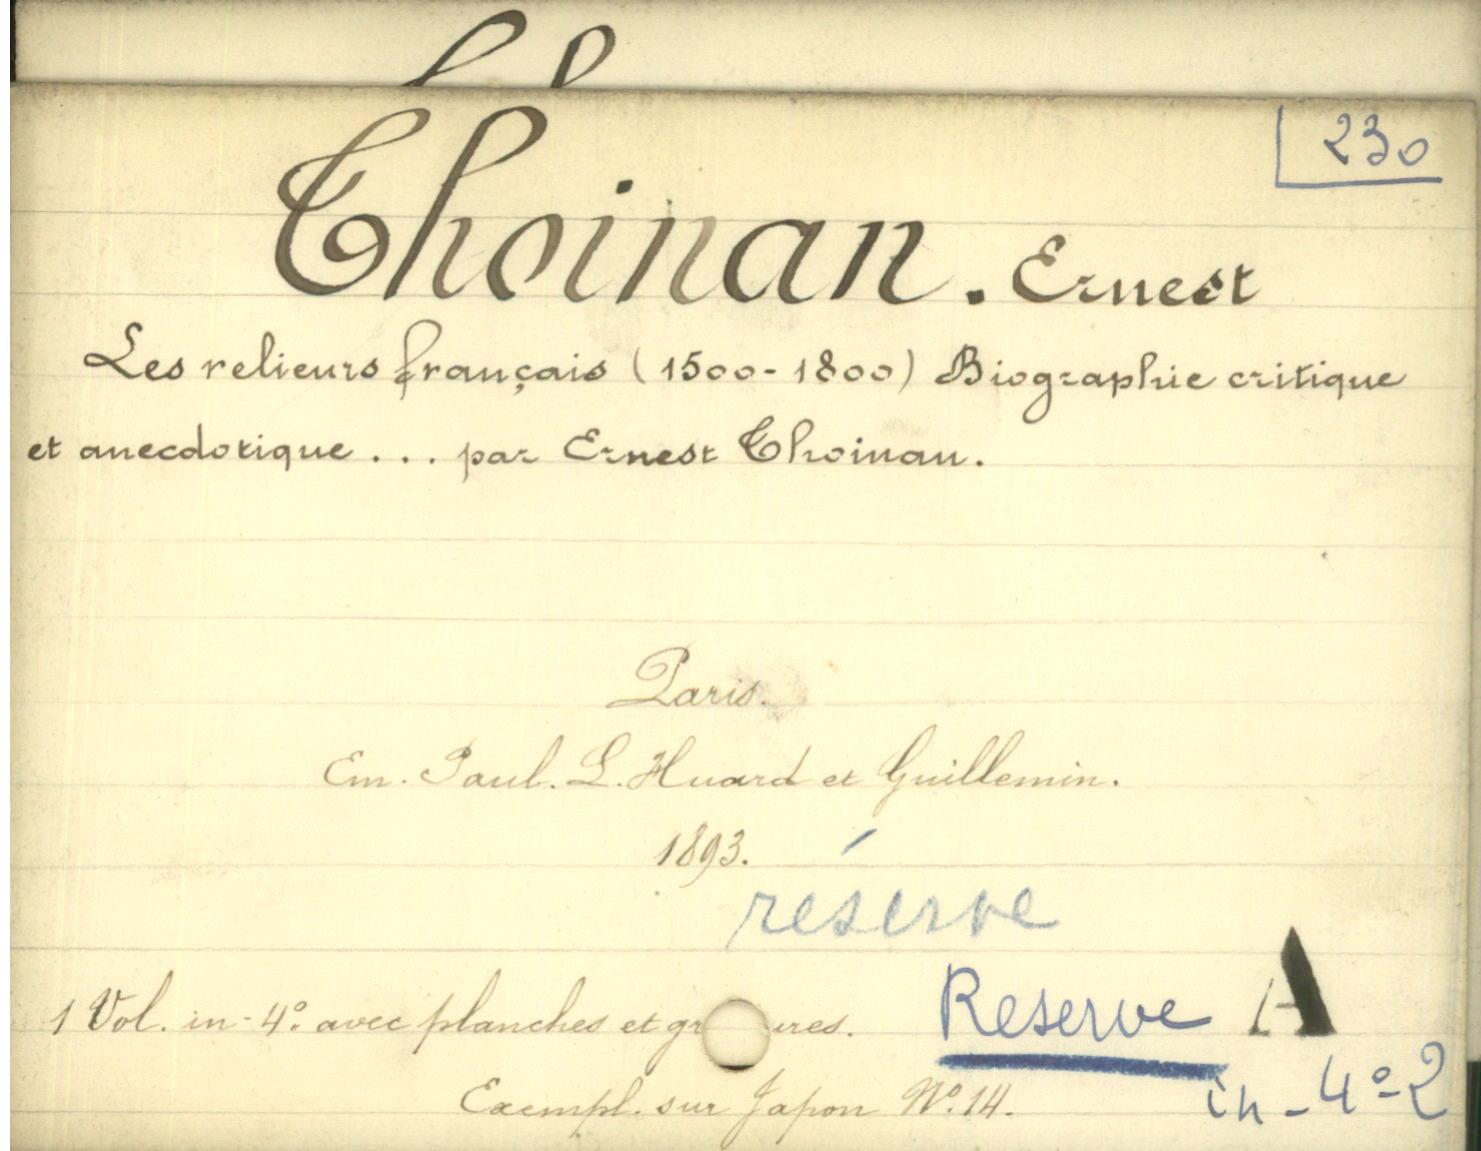 230
Thoinan. Ernest
Les relieurs français (1500-1800) Biographie critique
et anecdotique ... par Ernest Thoinan.
Paris.
Em. Paul. L. Huard et Guillemin.
1893.
réserve
1 Vol. in-4º. avec planches et gr ures.
Reserve A
Exempl. sur Japon Nº. 14.
in-4º-2